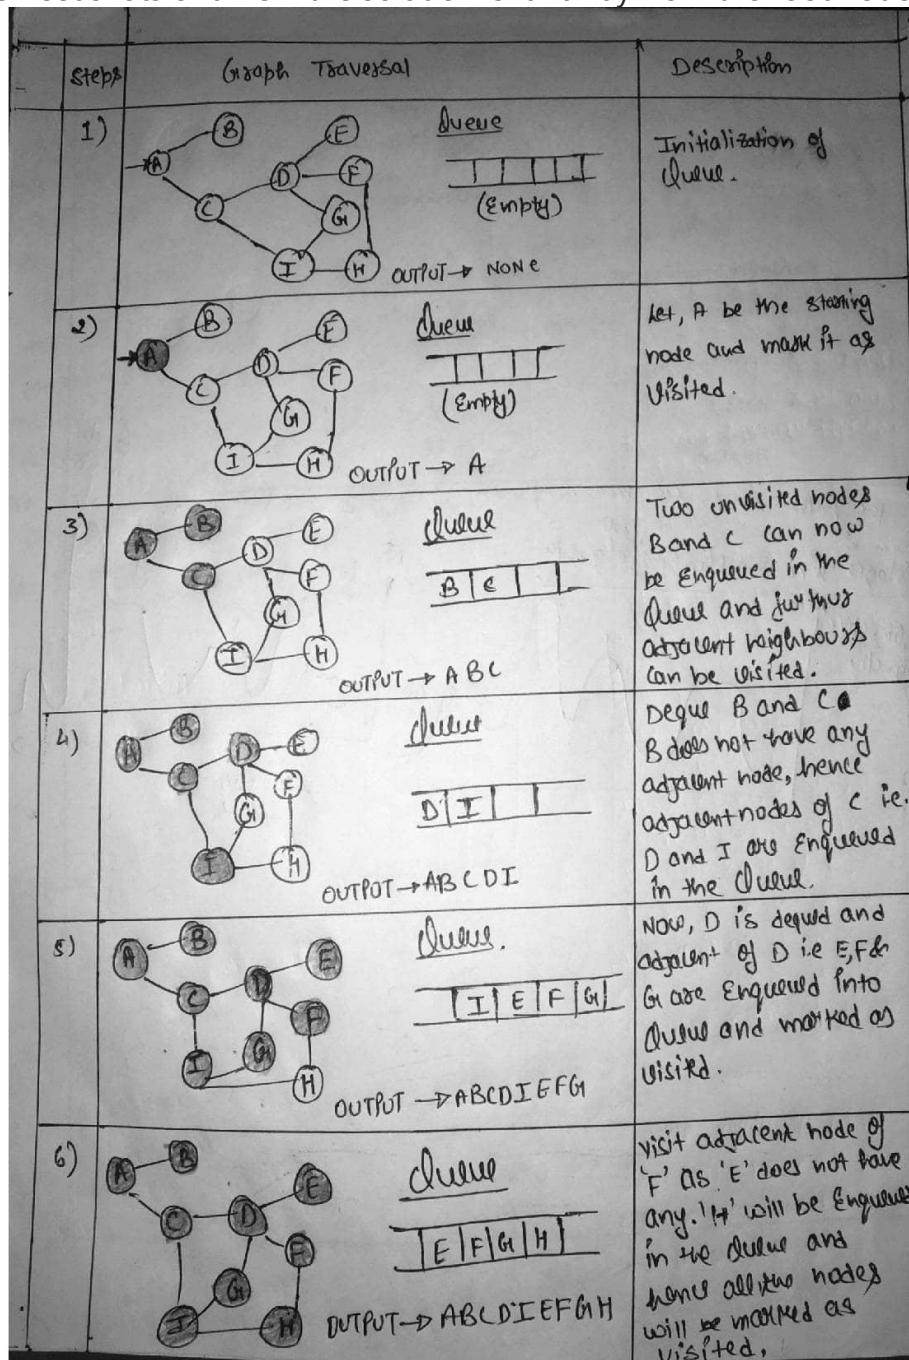 Steps
Graph Traversal
Description
1)
B
E
A
D
F
C
G
I
H
Queue
(Empty)
OUTPUT → NONE
Initialization of
Queue.
2)
B
E
A
D
F
C
G
I
H
Queue
(Empty)
OUTPUT → A
Let, A be the starting
node and mark it as
Visited.
3)
B
E
A
D
F
C
G
I
H
Queue
B C
OUTPUT → A B C
Two unvisited nodes
B and C can now
be Enqueued in the
Queue and further
adjacent neighbours
can be visited.
4)
B
E
A
D
F
C
G
I
H
Queue
D I
OUTPUT → A B C D I
Deque B and C
B does not have any
adjacent node, hence
adjacent nodes of C i.e.
D and I are Enqueued
in the Queue.
5)
B
E
A
D
F
C
G
I
H
Queue.
I E F G
OUTPUT → ABCDIEFG
Now, D is dequed and
adjacent of D i.e E,F&
G are Enqueued into
Queue and marked as
visited.
6)
B
E
A
D
F
C
G
I
H
Queue
E F G H
OUTPUT → ABCDIEFGH
visit adjacent node of
'F' as 'E' does not have
any. 'H' will be Enqueued
in the Queue and
hence all the nodes
will be marked as
visited.